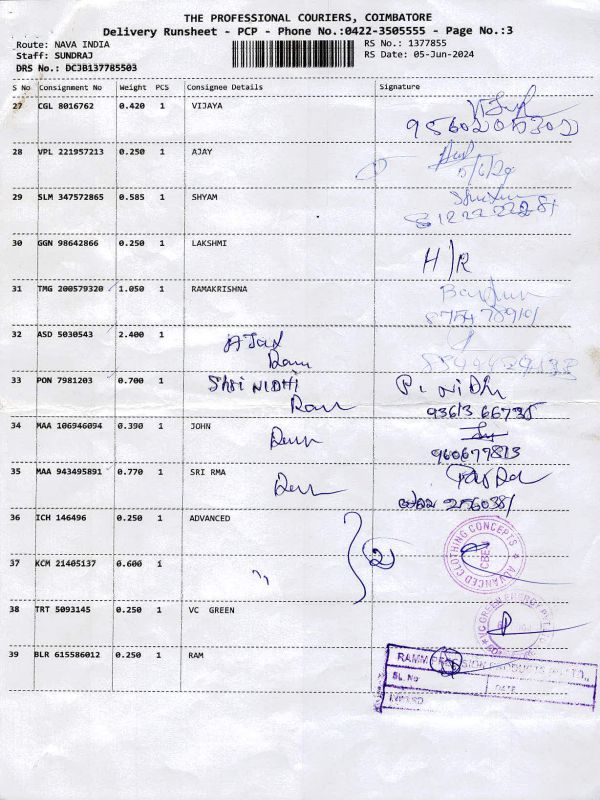 THE PROFESSIONAL COURIERS, COIMBATORE
Delivery Runsheet - PCP - Phone No.:0422-3505555 - Page No.:3
Route: NAVA INDIA
Staff: SUNDRAJ
DRS No.: DCJB137785503
RS No.: 1377855
RS Date: 05-Jun-2024
S No Consignment No Weight PCS Consignee Details Signature
27 CGL 8016762 0.420 1 VIJAYA
28 VPL 221957213 0.250 1 AJAY
5/6/24
29 SLM 347572865 0.585 1 SHYAM
30 GGN 98642866 0.250 1 LAKSHMI H/R
31 TMG 200579320 1.050 1 RAMAKRISHNA
32 ASD 5030543 2.400 1
33 PON 7981203 0.700 1 SHRI NIDHI P. NiDhi
93613 66735
34 MAA 106946094 0.390 1 JOHN
960677813
35 MAA 943495891 0.770 1 SRI RMA
36 ICH 146496 0.250 1 ADVANCED
2
ADVANCED CLOTHING CONCEPTS
CBE
37 KCM 21405137 0.600 1
38 TRT 5093145 0.250 1 VC GREEN
VC GREEN ENERGY
39 BLR 615586012 0.250 1 RAM
RAMM PRECISION PRODUCTS
SL. No
DATE